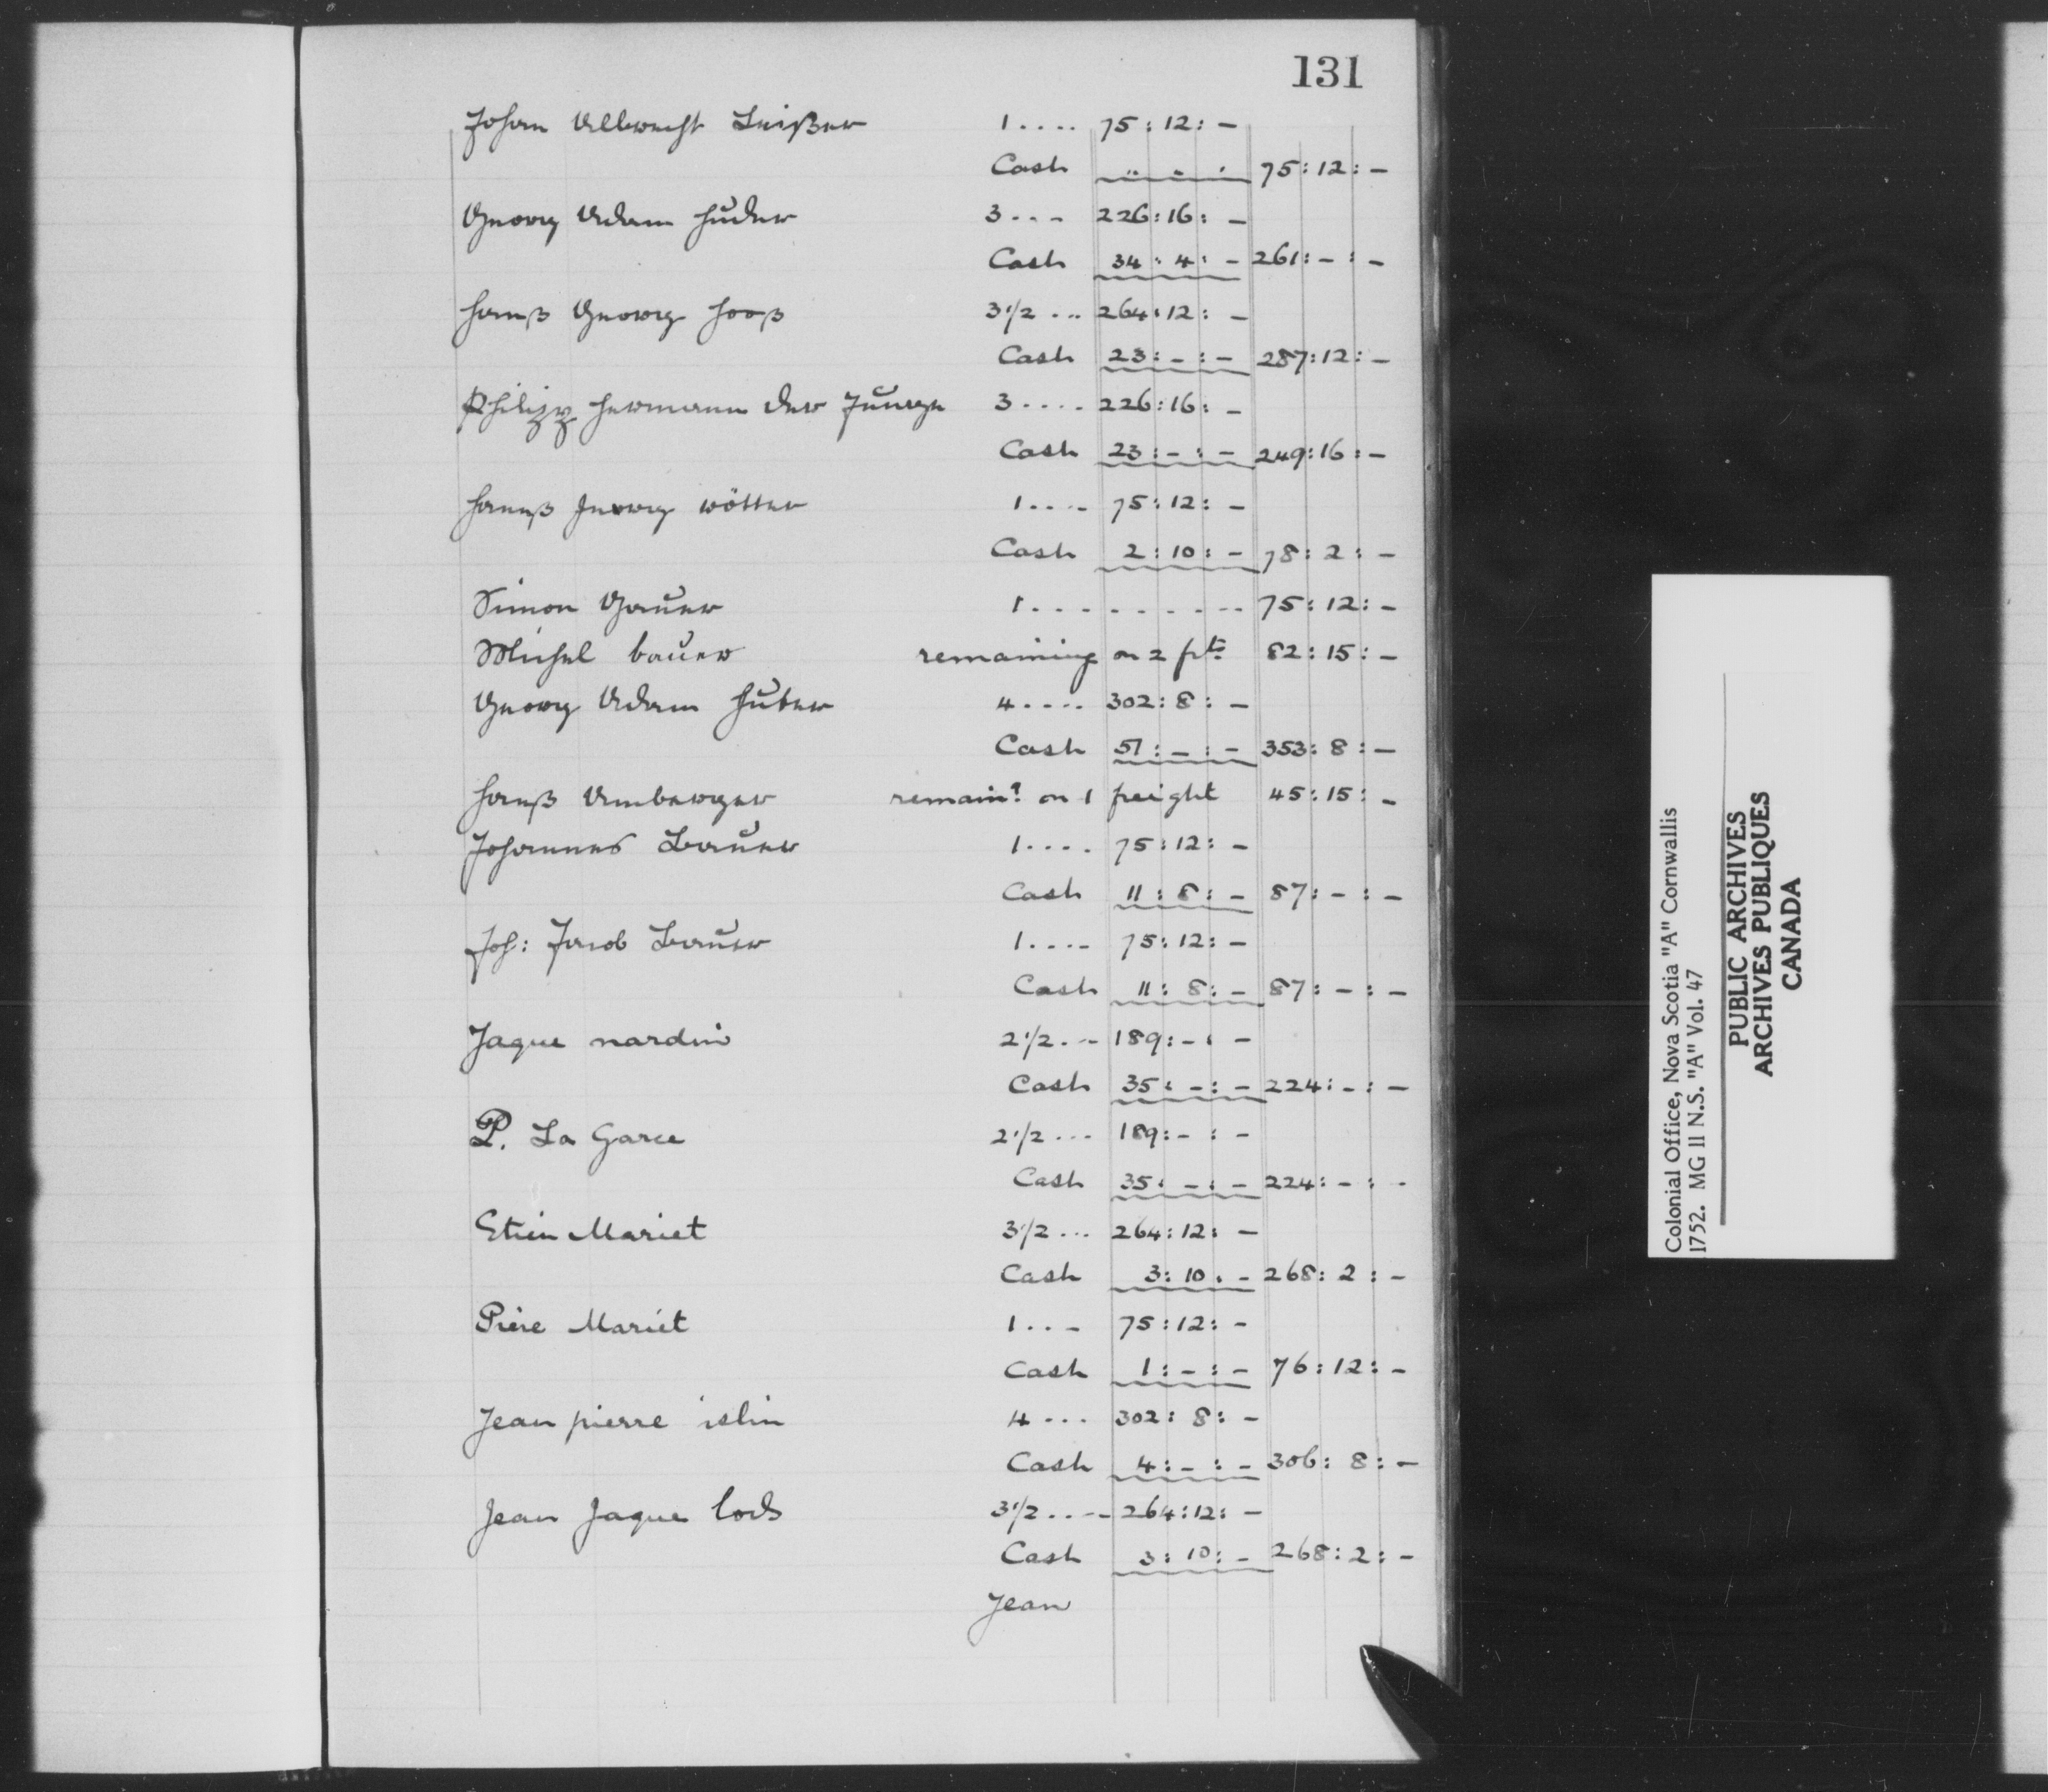 131
Johan Albrecht Leißer 1.... 75:12:-
Cash .. .. . 75:12:-
Georg Adam Huder 3... 226:16:-
Cash 34:4:- 261:-:-
Hanß Georg Hooß 3 1/2 ... 264:12:-
Cash 23:-:- 287:12:-
Philipp Hermann der Junge 3.... 226:16:-
Cash 23:-:- 249:16:-
Hanß Jeorg wötter 1.... 75:12:-
Cash 2:10:- 78:2:-
Simon Gauer 1......... 75:12:-
Michel bauer remaining on 2 fts 82:15:-
Georg Adam Huber 4.... 302:8:-
Cash 51:-:- 353:8:-
Hanß Amberger remaing on 1 freight 45:15:-
Johannes Bauer 1.... 75:12:-
Cash 11:8:- 87:-:-
Joh: Jacob Bauer 1.... 75:12:-
Cash 11:8:- 87:-:-
Jaque nardin 2 1/2... 189:-:-
Cash 35:-:- 224:-:-
P. La Garce 2 1/2 ... 189:-:-
Cash 35:-:- 224:-:-
Etien Mariet 3 1/2 ... 264:12:-
Cash 3:10:- 268:2:-
Piere Mariet 1... 75:12:-
Cash 1:-:- 76:12:-
Jean pierre islin 4... 302:8:-
Cash 4:-:- 306:8:-
Jean Jaque lods 3 1/2.... 264:12:-
Cash 3:10:- 268:2:-
Jean
Colonial Office, Nova Scotia "A" Cornwallis
1752. MG 11 N.S. "A" Vol. 47
PUBLIC ARCHIVES
ARCHIVES PUBLIQUES
CANADA